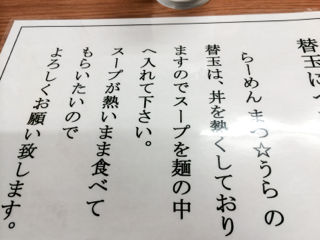 替玉に
らーめん まつ☆うら の
替玉は、丼を熱くしており
ますのでスープを麺の中
へ入れて下さい。
スープが熱いまま食べて
もらいたいので
よろしくお願い致します。